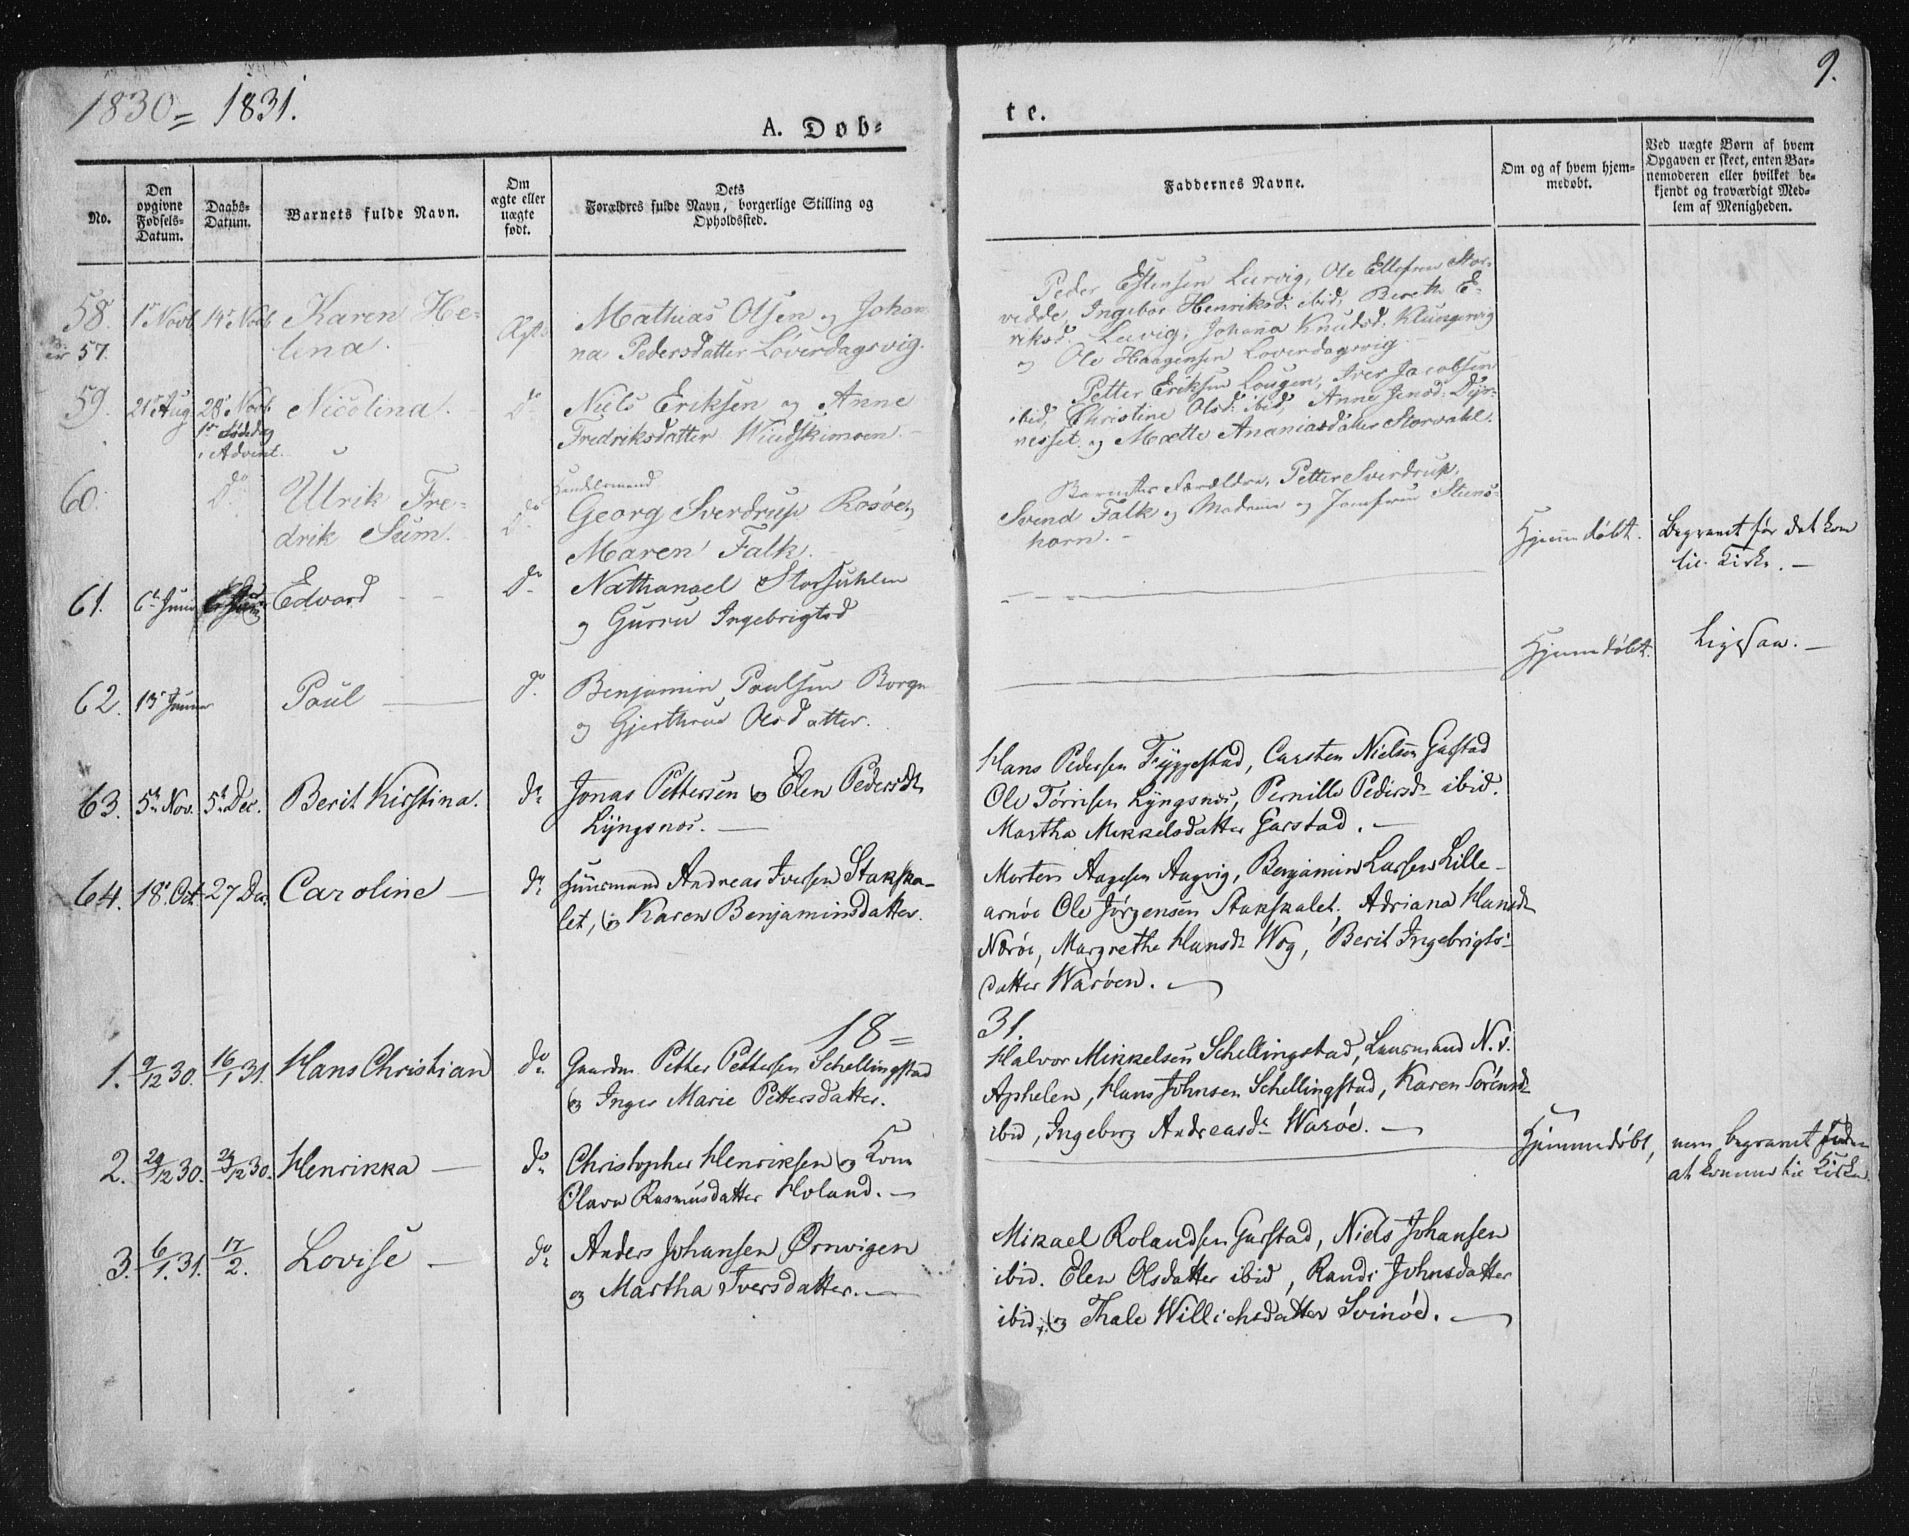 1830 = 1831.
9.
A. Døb-
te.
No.
Den
opgivne
Fødsels-
Datum.
Daabs-
Datum.
Barnets fulde Navn.
Om
ægte eller
uægte
født.
Dets
Forældres fulde Navn, borgerlige Stilling og
Opholdssted.
Faddernes Navne.
Om og af hvem hjem-
medøbt.
Ved uægte Børn af hvem
Opgaven er skeet, enten Bar-
nemoderen eller hvilket be-
kjendt og troværdigt Med-
lem af Menigheden.
58. 1r Novb 14r Novb Karen He-
57. lena.
Mathias Olsen og Johan-
na Pedersdatter Løverdagsvig.
Peder Estensen Lurvig, Ole Ellefsen Stor-
vedde, Ingebor Henriksd. ibid, Bereth E-
riksd. Lurvig, Johana Knudsd. Klungervig
og Ole Haagensen Loverdagsvig.
59. 21r Aug 28r Novb Nicolina. Do
1r Søndag
i Advent.
Niels Eriksen og Anne
Fredriksdatter
Petter Eriksen Iver Jacobsen
ibid, Christine Olsd. ibid, Anne Jensd. Dyr-
nesset. og Mætte Ananiasdatter Storvahl.
60. Do Ulrik Fre-
drik Sum. Do
Handelsmand
Georg Sverdrup Rosøe,
Maren Falk.
Barnets Forældre, Petter Sverdrup,
Svend Falk og Madame og Jomfrue Steens-
horn.
61. 6te Juni Edvard Do
Nathanael
og Gurru Ingebrigtsd
Hjemmedøbt. Begravet før det kom
til Kirke.
62. 13 Paul do
Benjamin Paulsen Borgn
og Gjerthrue Olsdatter.
Hjemmedøbt. Ligesaa.
63. 5te Nov. 5te Dec. Berit Kirstina. do
Jonas Pettersen og Elen Pedersdr
Lyngsnæs.
Hans Pedersen Fryggestad, Carsten Nielsen Garstad
Ole Torrisen Lyngsnæs, Pernille Pedersdr ibid.
Martha Mikkelsdatter Garstad.
64. 18de Oct. 27 Dec. Caroline do
Huusmand Andreas Iversen Stakska-
let, og Karen Benjaminsdatter.
Morten Aagesen Aagvig, Benjamin Larsen Lille-
arnøe Ole Jørgensen Stakskalet, Adriana Hansdr
Nærøe, Margrethe Hansdr Wog, Berit Ingebrigts-
datter Warøen.
18 =
31.
1. 9/12 30. 16/1 31. Hans Christian do
Gaardm. Petter Pettersen Schellingstad
og Inger Marie Pettersdatter.
Halvor Mikkelsen Schellingstad, Lensmand N. v.
Aphelen, Hans Johnsen Schellingstad, Karen Sørensdr
ibid, Ingeborg Andreasdr Warøe.
2. 24/12 30. 24/12 30. Henrikka do
Christopher Henriksen og Kone
Olava Rasmusdatter Holand.
Hjemmedøbt, men begravet inden
at komme til Kirken.
3. 6/1 31. 17/2. Lovise do
Anders Johansen Ørnvigen
og Martha Iversdatter.
Mikael Rolandsen Garstad, Niels Johansen
ibid. Elen Olsdatter ibid, Randi Johnsdatter
ibid, og Thale Willichsdatter Svinøe.